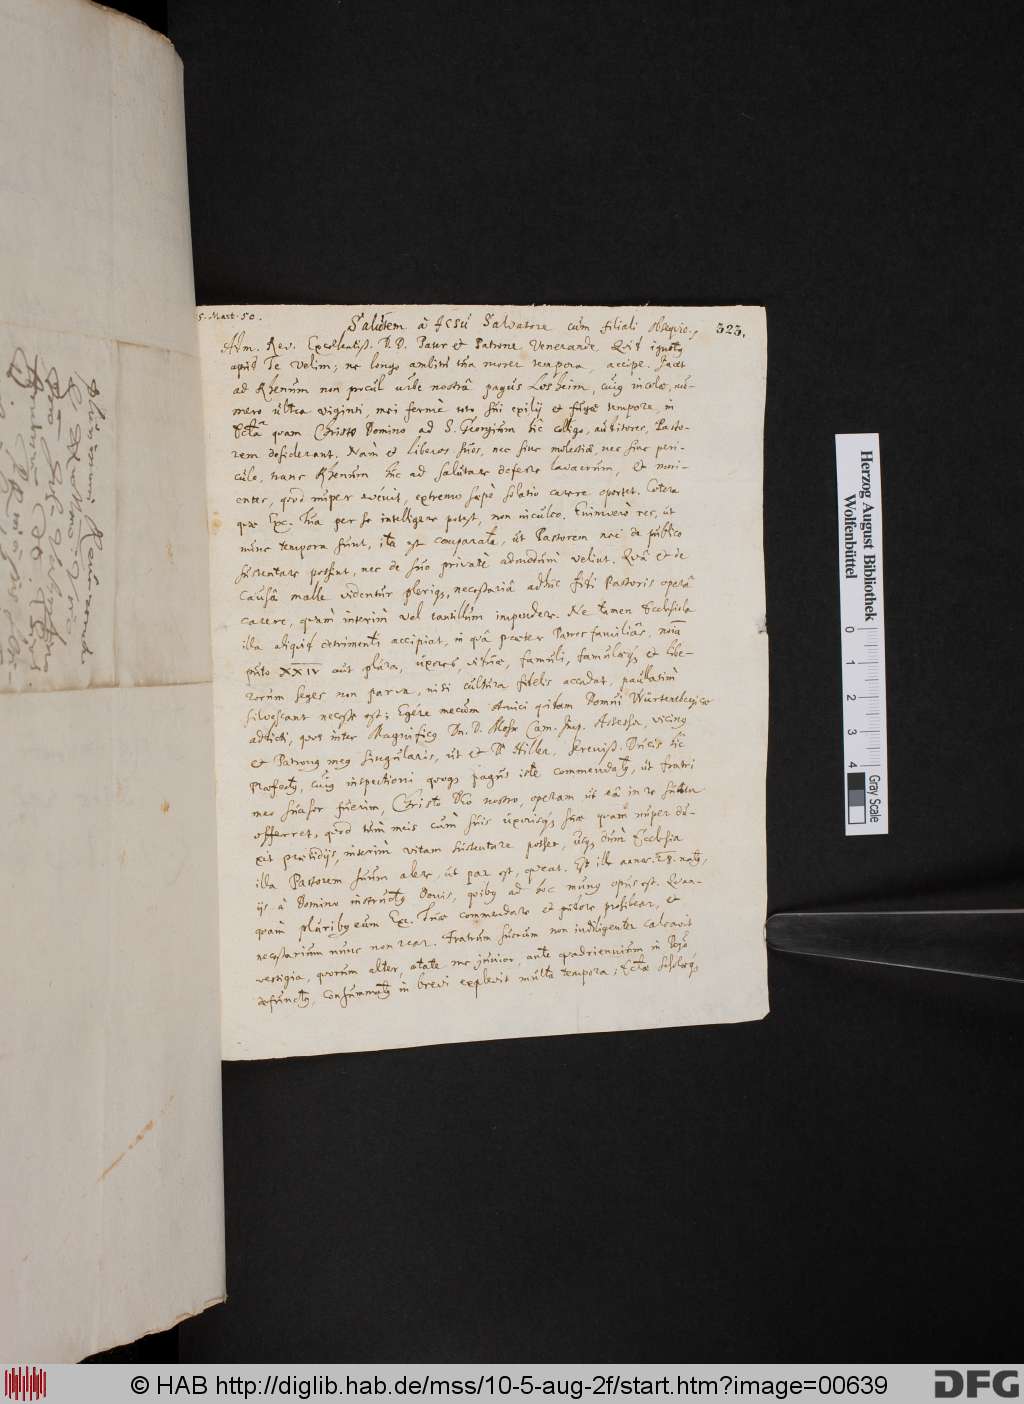 5. Mart. 50.
Salutem à Jesu Salvatore cum filiali obsequio.
523.
Adm. Rev. Excellentiss. D. D. Pater et Patrone Venerande. Quid
apud Te velim; ne longo ambitu tua morer tempora, accipe. Jacet
ad Rhenum non procul urbe nostrâ pagus Losheim, incolae, nu-
mero ultra viginti, mei fermè toto, sui exilij et tempore, in
quam Christo Domino ad S. Georgium hîc colligo, auditores, Pasto-
rem desiderant. Nam et liberos suos, nec sine molestiâ, nec sine peri-
culo, trans Rhenum huc ad salutare deferre lavacrum, et mori-
entes, quod nuper evênit, extremo saepè solatio carere oportet. Cetera
quae Exc. Tua per se intelligere potest, non inculco. Enimvero res, ut
nunc tempora sunt, ita est comparata, ut Pastorem nec de publico
sustentare possint, nec de suo privatè admodùm velint. Quâ et de
causâ malle videntur plerique, necessariâ adhuc Pastoris operâ
carere, quàm interim vel tantillum impendere. Ne tamen Ecclesiola
illa aliquid detrimenti accipiat, in quâ praeter Patres familiâs,
XXIV aut plures, uxores, viduae, famuli, famulaeque et libe-
rorum seges non parva, nisi cultura fidelis accedat, paullatim
silvescant necesse est; Egêre mecum Amici quidam Domui Würtenbergicae
addicti, quos inter Magnificus Dn. D. Cam. Imp. Assessor, vicinus
et Patronus meus singularis, ut et Dn. Hiller, Sereniss. Ducis hîc
Praefectus, cujus inspectioni quoque pagus iste commendatus, ut fratri
meo suasor fuerim, Christo Deo nostro, operam ut eâ in re suam
offerret, quòd tùm meis cùm suis uxorisque suae quam nuper du-
xit praesidijs, interim vitam sustentare posset, usque dùm Ecclesia
illa Pastorem suum alere, ut par est, queat. Est ille annos 28. natus,
ijs à Domino instructus donis, quibus ad hoc munus opus est. Quan-
quam pluribus eum Exc. Tuae commendare et pudore prohibear, et
necessarium nunc non rear. Fratrum suorum non indiligenter calcavit
vestigia, quorum alter, aetate me junior, ante quadriennium in
defunctus, consummatus in brevi explevit multa tempora;
Herzog August Bibliothek
Wolfenbüttel
0 1 2 3 4
Gray Scale
© HAB http://diglib.hab.de/mss/10-5-aug-2f/start.htm?image=00639
DFG